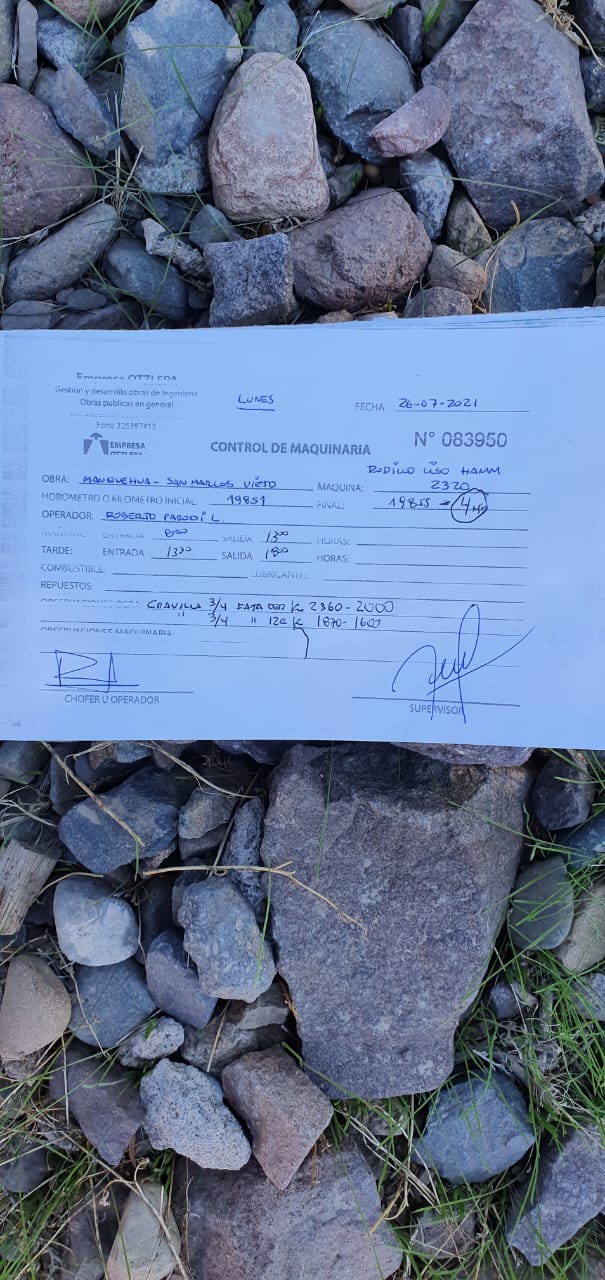 Empresa OTZI SPA
Gestión y desarrollo obras de Ingeniería
Obras publicas en general
LUNES
FECHA: 26-07-2021
Fono 325387413
EMPRESA
CONTROL DE MAQUINARIA
N° 083950
RODILLO LISO HAMM
OBRA: MANQUEHUA - SAN MARCOS VIEJO
MAQUINA: 2320
HOROMETRO O KILOMETRO INICIAL: 19851
FINAL: 19855 = 4 Hrs
OPERADOR: ROBERTO PARODI L.
MAÑANA: ENTRADA 800 SALIDA 1300 HORAS:
TARDE: ENTRADA 1330 SALIDA 1800 HORAS:
COMBUSTIBLE: LUBRICANTES:
REPUESTOS:
GRAVILLA 3/4 FAJA DER K 2360-2000
" 3/4 " IZQ K 1870-1600
OBSERVACIONES MAQUINARIA:
CHOFER U OPERADOR
SUPERVISOR